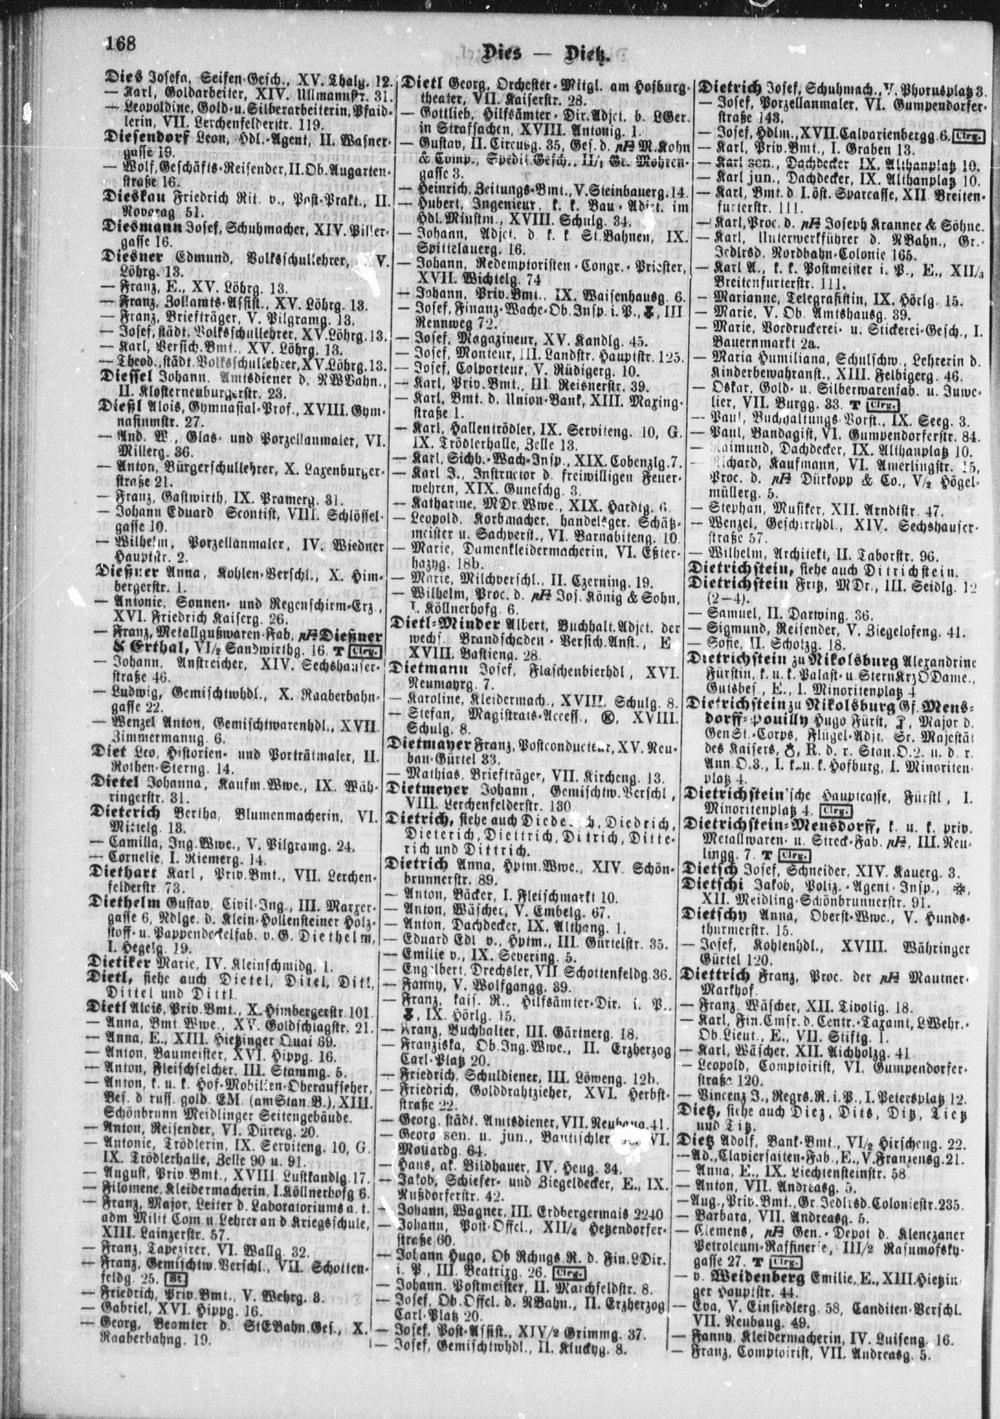 168
Dies — Dietz.
Dies Josefa, Seifen-Gesch., XV. Thalg. 12.
— Karl, Goldarbeiter, XIV. Ullmannstr. 31.
— Leopoldine, Gold- u. Silberarbeiterin, Pfaid-
lerin, VII. Lerchenfelderstr. 119.
Diesendorf Leon, Hdl.-Agent, II. Wasner-
gasse 19.
— Wolf, Geschäfts-Reisender, II. Ob. Augarten-
straße 16.
Dieskau Friedrich Rit. v., Post-Prakt., II.
Novarag 51.
Diesmann Josef, Schuhmacher, XIV. Piller-
gasse 16.
Diesner Edmund, Volksschullehrer, XV.
Löhrg. 13.
— Franz, E., XV. Löhrg. 13.
— Franz, Zollamts-Assist., XV. Löhrg. 13.
— Franz, Briefträger, V. Pilgramg. 13.
— Josef, städt. Volksschullehrer, XV. Löhrg. 13.
— Karl, Versich. Bmt., XV. Löhrg. 13.
— Theod., städt. Volksschullehrer, XV. Löhrg. 13.
Diessel Johann, Amtsdiener d. NWBahn.,
II. Klosterneuburgerstr. 23.
Dießl Alois, Gymnasial-Prof., XVIII. Gym-
nasiumstr. 27.
— And. W., Glas- und Porzellanmaler, VI.
Millerg. 36.
— Anton, Bürgerschullehrer, X. Laxenburger-
straße 21.
— Franz, Gastwirth, IX. Pramerg. 31.
— Johann Eduard Scontist, VIII. Schlössel-
gasse 10.
— Wilhelm, Porzellanmaler, IV. Wiedner
Hauptstr. 2.
Dießner Anna, Kohlen-Verschl., X. Him-
bergerstr. 1.
— Antonie, Sonnen- und Regenschirm-Erz.,
XVI. Friedrich Kaiserg. 26.
— Franz, Metallgußwaren-Fab. Dießner
& Erthal, VI/2 Sandwirthg. 16. T Clrg.
— Johann, Anstreicher, XIV. Sechshauser-
straße 46.
— Ludwig, Gemischtwhdl., X. Raaberbahn-
gasse 22.
— Wenzel Anton, Gemischtwarenhdl., XVII.
Zimmermanng. 6.
Diet Leo, Historien- und Porträtmaler, II.
Rothen-Sterng. 14.
Dietel Johanna, Kaufm. Wwe., IX. Wäh-
ringerstr. 31.
Dieterich Bertha, Blumenmacherin, VI.
Mittelg. 13.
— Camilla, Ing. Wwe., V. Pilgramg. 24.
— Cornelie, I. Riemerg. 14.
Diethart Karl, Priv. Bmt., VII. Lerchen-
felderstr. 73.
Diethelm Gustav, Civil-Ing., III. Marxer-
gasse 6, Ndlge. d. Klein-Hollensteiner Holz-
stoff- u. Pappendeckelfab. v. G. Diethelm,
I. Hegelg. 19.
Dietiker Marie, IV. Kleinschmidg. 1.
Dietl, siehe auch Dietel, Ditel, Ditl,
Dittel und Dittl.
Dietl Alois, Priv. Bmt., X. Himbergerstr. 101.
— Anna, Bmt. Wwe., XV. Goldschlagstr. 21.
— Anna, E., XIII. Hietzinger Quai 69.
— Anton, Baumeister, XVI. Hippg. 16.
— Anton, Fleischselcher, III. Stammg. 5.
— Anton, k. u. k. Hof-Mobilien-Oberaufseher,
Bes. d russ. gold. EM. (am Stan. B.), XIII.
Schönbrunn Meidlinger Seitengebäude.
— Anton, Reisender, VI. Dürerg. 20.
— Antonie, Trödlerin, IX. Serviteng. 10, G.
IX. Trödlerhalle, Zelle 90 u. 91.
— August, Priv. Bmt., XVIII. Lustkandlg. 17.
— Filomene, Kleidermacherin, I. Köllnerhofg 6.
— Franz, Major, Leiter d. Laboratoriums a. t.
adm Milit Com u. Lehrer an d. Kriegsschule,
XIII. Lainzerstr. 57.
— Franz, Tapezirer, VI. Wallg. 32.
— Franz, Gemischtw. Verschl., VII. Schotten-
feldg. 25.
— Friedrich, Priv. Bmt., V. Wehrg. 3.
— Gabriel, XVI. Hippg. 16.
— Georg, Beamter d. StEBahn. Ges., X.
Raaberbahng. 19.
Dietl Georg, Orchester-Mitgl. am Hofburg-
theater, VII. Kaiserstr. 28.
— Gottlieb, Hilfsämter-Dir. Adjct. b. LGer.
in Strafsachen, XVIII. Antonig. 1.
— Gustav, II. Circusg. 35, Ges. d. M. Kohn
& Comp., Spedit. Gesch., II/1 Gr. Mohren-
gasse 3.
— Heinrich, Zeitungs-Bmt., V. Steinbauerg. 14.
— Hubert, Ingenieur, k. k. Bau-Adjct. im
Hdl. Minstm., XVIII. Schulg. 34.
— Johann, Adjct. d. k. k. St. Bahnen, IX.
Spittelauerg. 16.
— Johann, Redemptoristen-Congr.-Priester,
XVII. Wichtelg. 74
— Johann, Priv. Bmt., IX. Waisenhausg. 6.
— Josef, Finanz-Wache-Ob. Insp. i. P., III
Rennweg 72.
— Josef, Magazineur, XV. Kandlg. 45.
— Josef, Monteur, III. Landstr. Hauptstr. 125.
— Josef, Colporteur, V. Rüdigerg. 10.
— Karl, Priv. Bmt., III. Reisnerstr. 39.
— Karl, Bmt. d. Union-Bank, XIII. Maxing-
straße 1.
— Karl, Hallentrödler, IX. Serviteng. 10, G.
IX. Trödlerhalle, Zelle 13.
— Karl, Sichh.-Wach-Insp., XIX. Cobenzlg. 7.
— Karl J., Instructor d. freiwilligen Feuer-
wehren, XIX. Guneschg. 3.
— Katharine, MDr. Wwe., XIX. Hardtg. 6.
— Leopold, Korbmacher, handelsger. Schätz-
meister u. Sachverst., VI. Barnabiteng. 10.
— Marie, Damenkleidermacherin, VI. Eßter-
hazyg. 18b.
— Marie, Milchverschl., II. Czerning. 19.
— Wilhelm, Proc. d. Jos. König & Sohn,
I. Köllnerhofg. 6.
Dietl-Minder Albert, Buchhalt. Adjct. der
wechs. Brandschaden-Versich. Anst., E
XVIII. Bastieng. 28.
Dietmann Josef, Flaschenbierhdl, XVI.
Neumayrg. 7.
— Karoline, Kleidermach., XVIII. Schulg. 8.
— Stefan, Magistrats-Access., XVIII.
Schulg. 8.
Dietmayer Franz, Postconducteur, XV. Neu-
bau-Gürtel 33.
— Mathias, Briefträger, VII. Kircheng. 13.
Dietmeyer Johann, Gemischtw. Verschl.,
VIII. Lerchenfelderstr. 130
Dietrich, siehe auch Diederich, Diedrich,
Dieterich, Diettrich, Ditrich, Ditte-
rich und Dittrich.
Dietrich Anna, Hptm. Wwe., XIV. Schön-
brunnerstr. 89.
— Anton, Bäcker, I. Fleischmarkt 10.
— Anton, Wäscher, V. Embelg. 67.
— Anton, Dachdecker, IX. Althang. 1.
— Eduard Edl. v., Hptm., III. Gürtelstr. 35.
— Emilie v., IX. Severing. 5.
— Engelbert, Drechsler, VII. Schottenfeldg. 36.
— Fanny, V. Wolfgangg. 39.
— Franz, kais. R., Hilfsämter-Dir. i. P.,
IX. Hörlg. 15.
— Franz, Buchhalter, III. Gärtnerg. 18.
— Franziska, Ob. Ing. Wwe., II. Erzherzog
Carl-Platz 20.
— Friedrich, Schuldiener, III. Löweng. 12b.
— Friedrich, Golddrahtzieher, XVI. Herbst-
straße 22.
— Georg, städt. Amtsdiener, VII. Neubaug. 41.
— Georg sen. u. jun., Bautischler VI.
Mouardg. 64.
— Hans, ak. Bildhauer, IV. Heug. 34.
— Jakob, Schiefer- und Ziegeldecker, E., IX.
Nußdorferstr. 42.
Johann, Wagner, III. Erdbergermais 2240
— Johann, Post-Offcl., XII/4 Hetzendorfer-
straße 60.
— Johann Hugo, Ob Rchngs. R. d. Fin. LDir.
i. P., III. Beatrixg. 26. Clrg.
— Johann, Postmeister, II. Marchfeldstr. 8.
— Josef, Ob. Offcl. d. NBahn., II. Erzherzog
Carl-Platz 20.
— Josef, Post-Assist., XIV/2 Grimmg. 37.
— Josef, Gemischtwhdl., II. Kluckyg. 8.
Dietrich Josef, Schuhmach., V. Phorusplatz 3.
— Josef, Porzellanmaler, VI. Gumpendorfer-
straße 143.
— Josef, Hdlm., XVII. Calvarienbergg 6. Clrg.
— Karl, Priv. Bmt., I. Graben 13.
— Karl sen., Dachdecker, IX. Althanplatz 10.
— Karl jun., Dachdecker, IX. Althanplatz 10.
— Karl, Bmt. d I. öst. Sparcasse, XII. Breiten-
furterstr. 111.
— Karl, Proc. d. Joseph Kranner & Söhne.
— Karl, Unterwerkführer d. NBahn., Gr.-
Jedlrsd. Nordbahn-Colonie 165.
— Karl A., k. k. Postmeister i. P., E., XII/3
Breitenfurterstr. 111.
— Marianne, Telegrafistin, IX. Hörlg. 15.
— Marie, V. Ob. Amtshausg. 39.
— Marie, Vordruckerei- u. Stickerei-Gesch., I.
Bauernmarkt 2a.
— Maria Humiliana, Schulschw., Lehrerin d.
Kinderbewahranst., XIII. Felbigerg. 46.
— Oskar, Gold- u. Silberwarenfab. u. Juwe-
lier, VII. Burgg. 33. T Clrg.
— Paul, Buchhaltungs-Vorst., IX. Seeg. 3.
— Paul, Bandagist, VI. Gumpendorferstr. 84.
— Raimund, Dachdecker, IX. Althanplatz 10.
— Richard, Kaufmann, VI. Amerlingstr. 15,
Proc. d. Dürkopp & Co., V/2 Högel-
müllerg. 5.
— Stephan, Musiker, XII. Arndtstr. 47.
— Wenzel, Geschirrhdl., XIV. Sechshauser-
straße 57.
— Wilhelm, Architekt, II. Taborstr. 96.
Dietrichstein, siehe auch Ditrichstein.
Dietrichstein Fritz, MDr., III. Seidlg. 12
(2—4).
— Samuel, II. Darwing. 36.
— Sigmund, Reisender, V. Ziegelofeng. 41.
— Sofie, II. Scholzg. 18.
Dietrichstein zu Nikolsburg Alexandrine
Fürstin, k. u. k. Palast- u. SternKrzO Dame.,
Gutsbes., E., I. Minoritenplatz 4
Dietrichstein zu Nikolsburg Gf. Mens-
dorff-Pouilly Hugo Fürst, Major d.
Gen St.-Corps, Flügel-Adjt. Sr. Majestät
des Kaisers, R. d. r. Stan. O. 2. u. d. r.
Ann. O. 3., I. k. u. k. Hofburg, I. Minoriten-
platz 4.
Dietrichstein'sche Hauptcasse, Fürstl., I.
Minoritenplatz 4. Clrg.
Dietrichstein-Mensdorff, k. u. k. priv.
Metallwaren- u. Streck-Fab. III. Neu-
lingg. 7. T Clrg.
Dietsch Josef, Schneider, XIV. Kauerg. 3.
Dietschi Jakob, Poliz.-Agent-Insp.,
XII. Meidling-Schönbrunnerstr. 91.
Dietschy Anna, Oberst-Wwe., V. Hunds-
thurmerstr. 15.
— Josef, Kohlenhdl., XVIII. Währinger
Gürtel 120.
Diettrich Franz, Proc. der Mautner-
Markhof.
— Franz, Wäscher, XII. Tivolig. 18.
— Karl, Fin. Cmsr. d. Centr.-Taxamt, LWehr.-
Ob. Lieut., E., VII. Stiftg. 1.
— Karl, Wäscher, XII. Aichholzg. 41
— Leopold, Comptoirist, VI. Gumpendorfer-
straße 120.
— Vincenz J., Regrs. R. i. P., I. Petersplatz 12.
Dietz, siehe auch Diez, Dits, Ditz, Tietz
und Titz.
Dietz Adolf, Bank-Bmt., VI/2 Hirscheng. 22.
— Ad., Claviersaiten-Fab., E., V. Franzensg. 21.
— Anna, E., IX. Liechtensteinstr. 58
— Anton, VII. Andreasg. 5.
— Aug., Priv. Bmt., Gr. Jedlrsd. Coloniestr. 235.
— Barbara, VII. Andreasg. 5.
— Clemens, Gen.-Depot d. Klenczaner
Petroleum-Raffinerie, III/2 Rasumofsky-
gasse 27. T Clrg.
— v. Weidenberg Emilie, E., XIII. Hietzin
ger Hauptstr. 44.
— Eva, V. Einsiedlerg. 58, Canditen-Verschl.
VII. Neubaug. 49.
— Fanny, Kleidermacherin, IV. Luiseng. 16.
— Franz, Comptoirist, VII. Andreasg. 5.